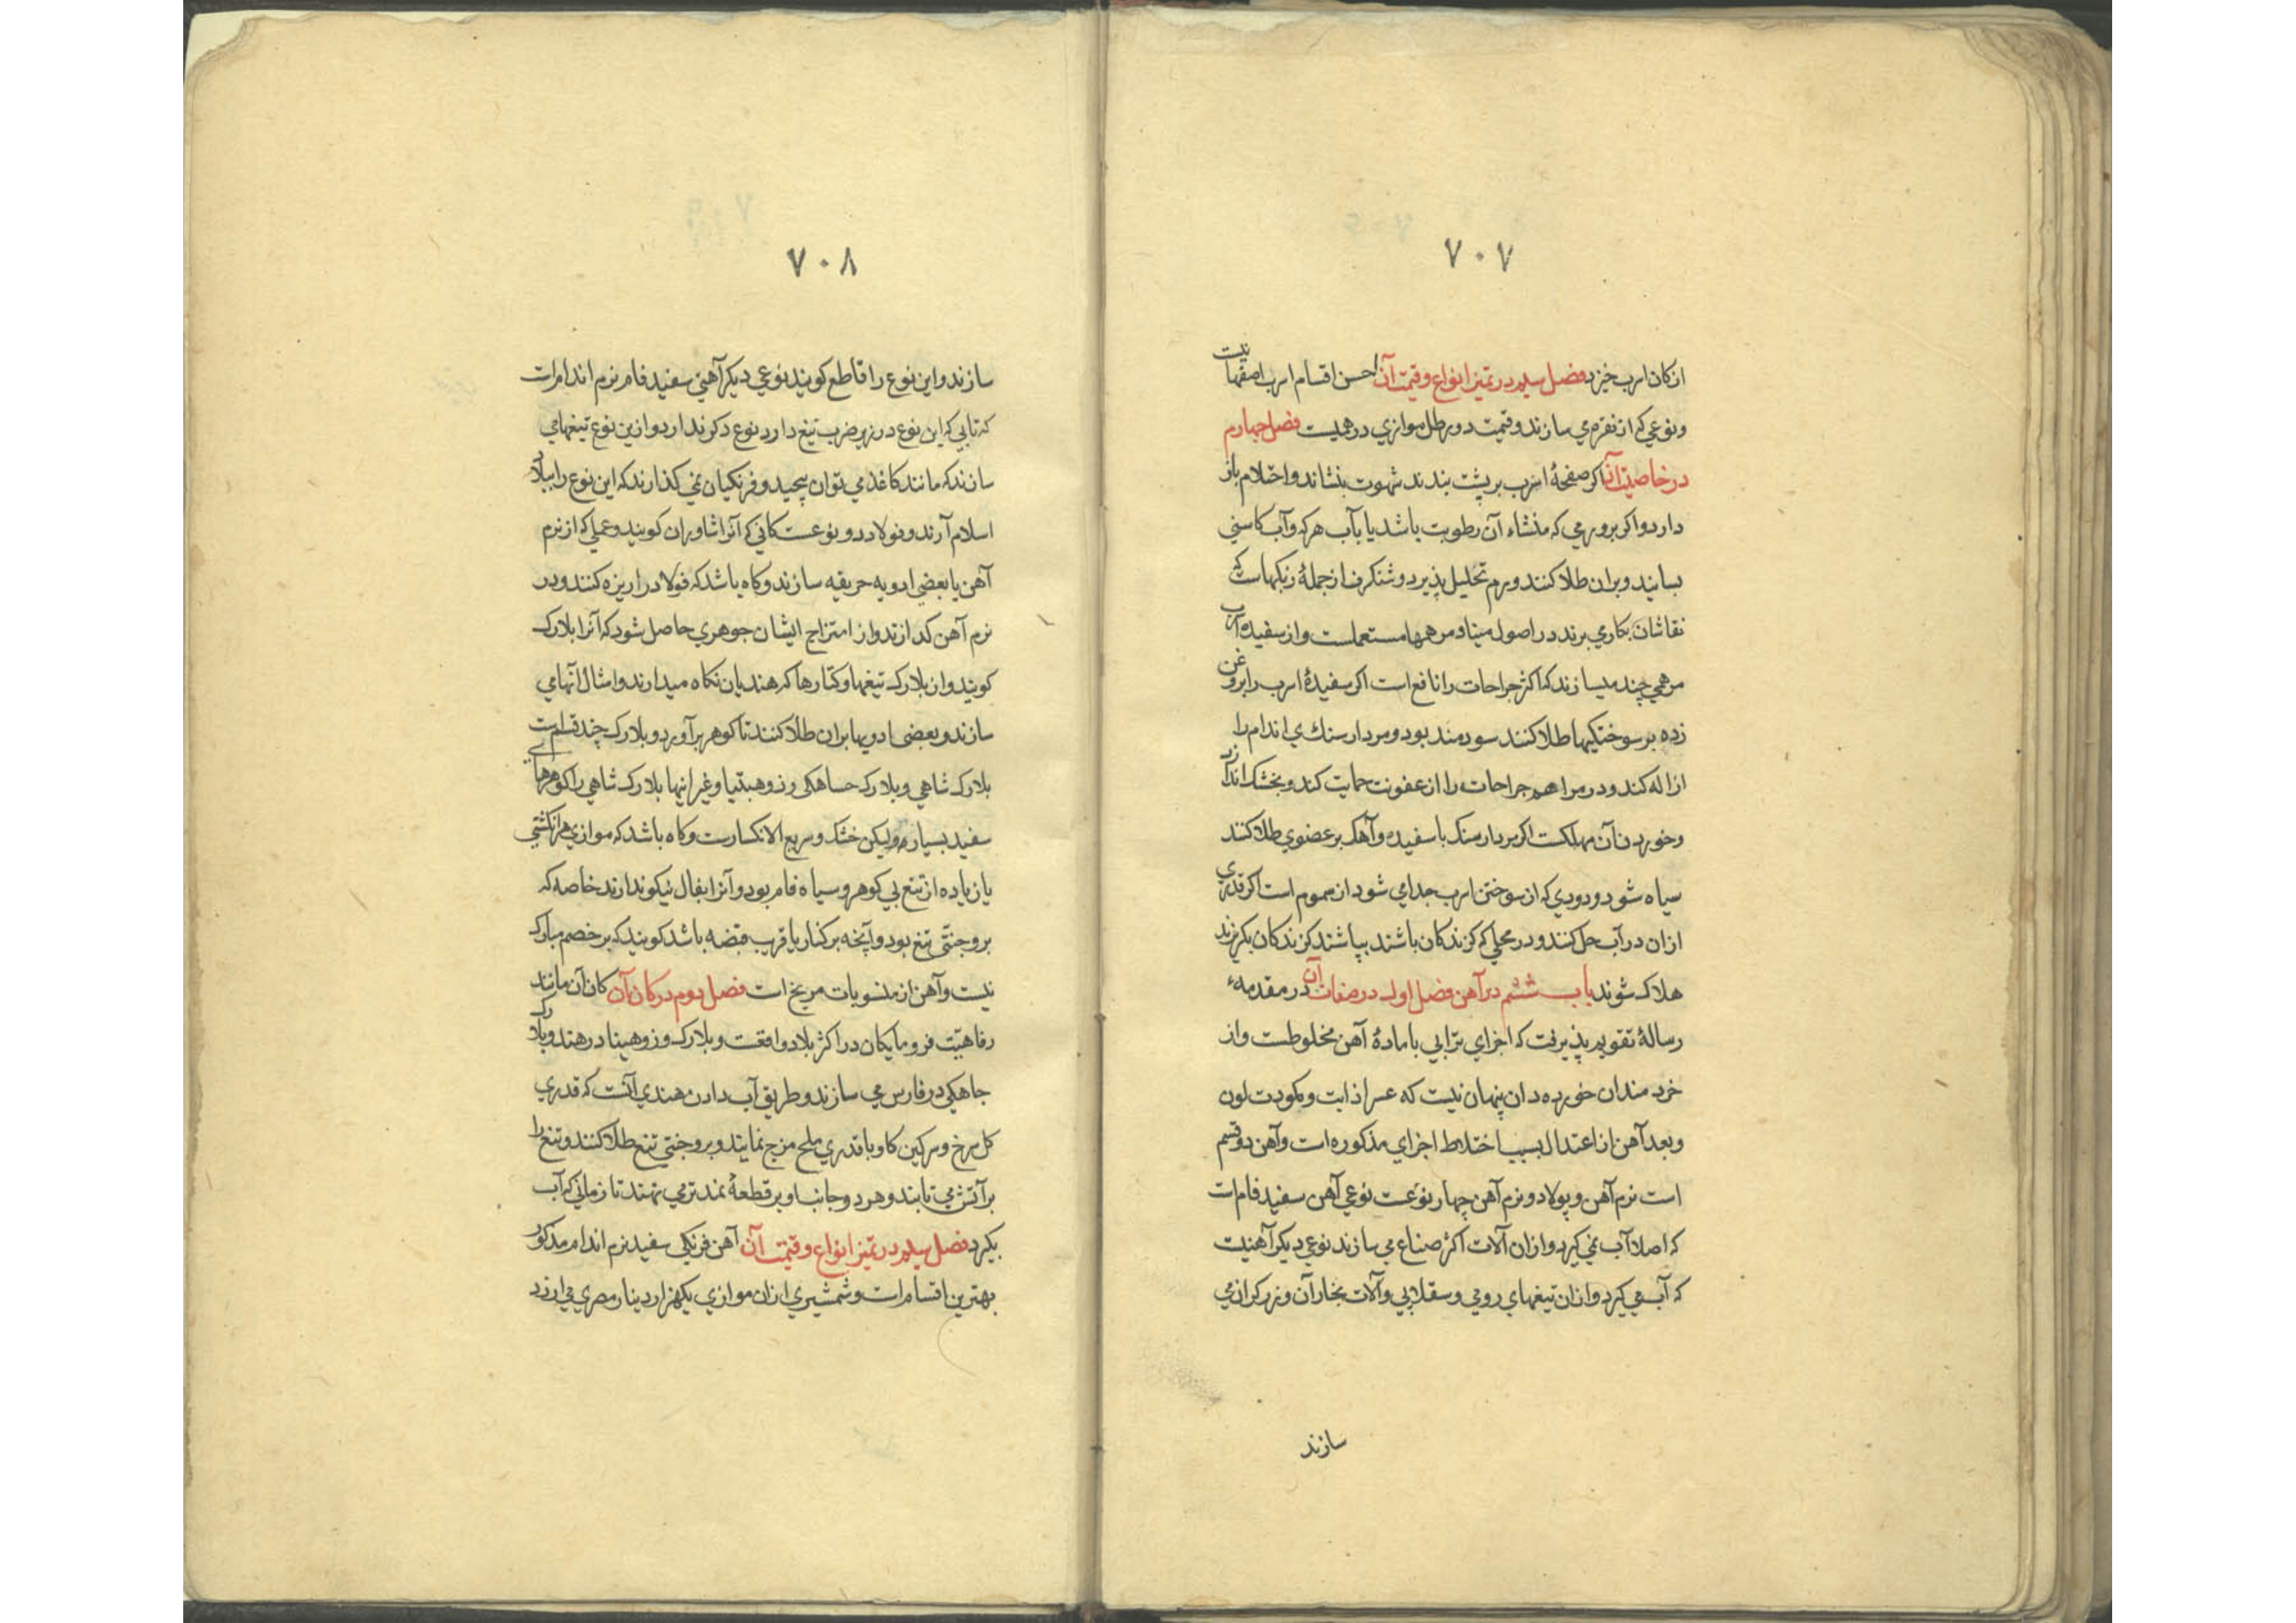 ۷۰۷
از کان اسرب خیزد فصل سیم در تمیز انواع و قیمت آن احسن اقسام اسرب اصفهانیست
و نوعی که از نقره می سازند و قیمت دو رطل موازی درهمیست فصل چهارم
در خاصیت آن اکر صفحهٔ اسرب بر پشت بندند شهوت بنشاند و احتلام باز
دارد و اکر بر ورمی که منشاء آن رطوبت باشد یا بآب هرکه و آب کاسنی
بسایند و بران طلا کنند ورم تحلیل پذیرد و شنکرف از جملهٔ رنکهاست که
نقاشان بکار می برند در اصول مینا و مرهمها مستعملست و از سفیده اسرب
مرهمی چند میسازند که اکثر جراحات را نافع است اکر سفیدهٔ اسرب را بروغن
زده بر سوختکیها طلا کنند سودمند بود و مردارسنك ی اندام را
ازاله کند و در مراهم جراحات را از عفونت حمایت کند و بخشک اندازد
و خوردن آن مهلکست اکر مردارسنک با سفیده و آهک بر عضوی طلا کنند
سیاه شود و دودی که از سوختن اسرب جدا می شود از سموم است اکر قدری
ازان در آب حل کنند و در محلی که کزندکان باشند بپاشند کزندکان بکریزند
هلاک شوند باب ششم در آهن فصل اول در صفات آن در مقدمهٔ
رسالهٔ تقویم پذیرفت که اجزای ترابی با مادهٔ آهن مخلوطست و از
خردمندان خورده دان پنهان نیست که عسر اذابت و کمودت لون
و بعد آهن از اعتدال بسبب اختلاط اجزای مذکوره است و آهن دو قسم
است نرم آهن و پولاد و نرم آهن چهار نوعست نوعی آهن سفید فام است
که اصلا آب نمی کیرد و ازان آلات اکثر صناع می سازند نوعی دیکر آهنیست
که آب می کیرد و ازان تیغهای رومی و سقلابی و آلات بخاران و زرکران می
سازند
۷۰۸
سازند و این نوع را قاطع کویند نوعی دیکر آهنی سفید فام نرم اندام است
که تابی که این نوع در زیر ضرب تیغ دارد نوع دکر ندارد و ازین نوع تیغهای می
سازند که مانند کاغذ می توان پیچید و فرنکیان نمی کذارند که این نوع را ببلاد
اسلام آرند و فولاد دو نوعست کانی که آنرا شاوران کویند و عملی که از نرم
آهن با بعضی ادویه حریقه سازند و کاه باشد که فولاد را ریزه کنند و در
نرم آهن کدازند و از امتزاج ایشان جوهری حاصل شود که آنرا بلارک
کویند و از بلارک تیغها و کتارها که هندیان نکاه میدارند و امثال آنها می
سازند و بعضی ادویها بران طلا کنند تا کوهر برآورد و بلارک چند قسم است
بلارک شاهی و بلارک جساهکی و زوهبتیا و غیر اینها بلارک شاهی را کوهرهای
سفید بسیار بود لیکن خشک و سریع الانکسارست و کاه باشد که موازی هر انکشتی
یا زیاده از تیغ بی کوهر و سیاه فام بود و آنرا بفال نیکو ندارند خاصه که
بر وجنتی تیغ بود و آنچه بر کنار یا قریب قبضه باشد کویند که بر خصم مبارک
نیست و آهن از منسوبات مریخ است فصل دوم در کان آن کان آن مانند
رفاهیت فرومایکان در اکثر بلاد واقعست و بلارک و زوهینا در هند و بلارک
جاهکی در فارس می سازند و طریق آب دادن هندی آنست که قدری
کل سرخ و سرکین کاو با قدری ملح مزج نمایند و بر وجنتی تیغ طلا کنند و تیغ را
بر آتش می تابند و هر دو جانب او بر قطعهٔ نمد تر می نهند تا زمانی که آب
بکیرد فصل سیم در تمیز انواع و قیمت آن آهن فرنکی سفید نرم اندام مذکور
بهترین اقسام است و شمشیری ازان موازی یکهزار دینار مصری می ارزد